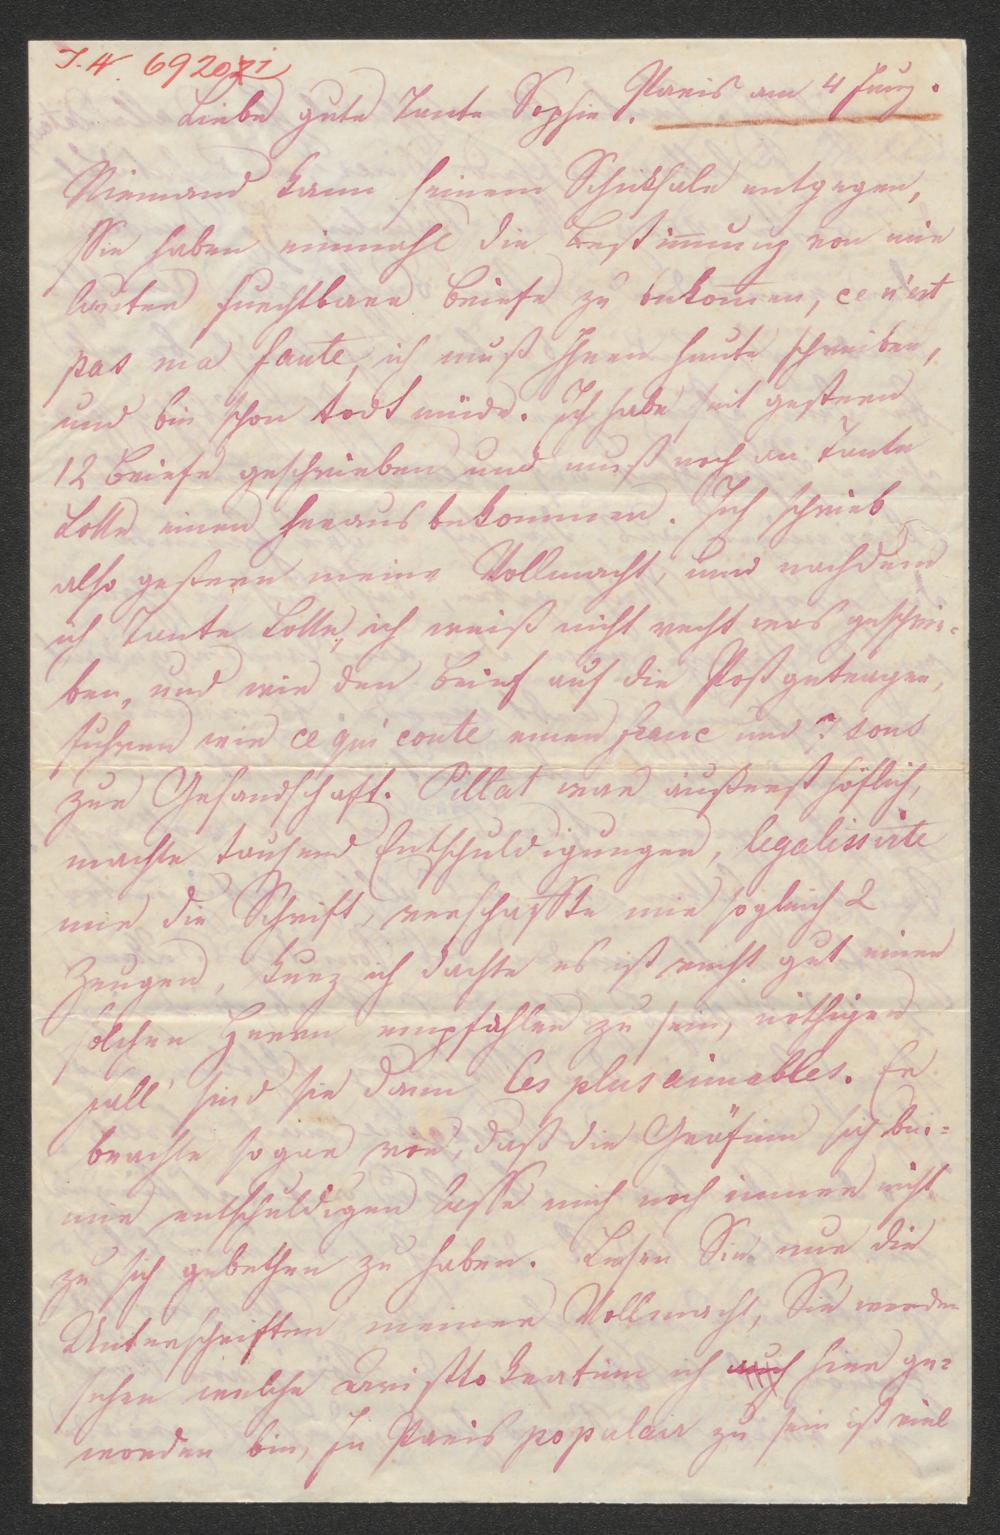 I.N. 69202/1
Paris am 4 Juny.
Liebe gute Tante Sophie.
Niemand kann seinem Schicksale entgegen,
Sie haben einmahl die Bestimmung von mir
lauter furchtbare Briefe zu bekommen, ce n'est
pas ma faute, ich muß Ihnen heute schreiben,
und bin schon todt müde. Ich habe seit gestern
12 Briefe geschrieben und muß noch an Tante
Lotte einen herausbekommen. Ich schrieb
also gestern meine Vollmacht, und nachdem
ich Tante Lotte, ich weiß nicht recht was geschrie-
ben, und wir den Brief auf die Post getragen,
fuhren wir ce qui coute einen franc und 7 sous
zur Gesandschaft. Pillat war äußerst höflich,
machte tausend Entschuldigungen, legalissirte
mir die Schrift, verschaffte mir sogleich 2
Zeugen, kurz ich dachte es ist recht gut einen
solchen Herrn empfohlen zu sein, nöthigen
fall sind sie dann les plus aimables. Er
brachte sogar vor, daß die Gräfinn sich bei-
mir entschuldigen lasse mich noch immer nicht
zu sich gebethen zu haben. Lesen Sie nur die
Unterschriften meiner Vollmacht, Sie werden
sehen welche Aristtokratinn ich hier ge-
worden bin, In Paris populair zu sein ist viel